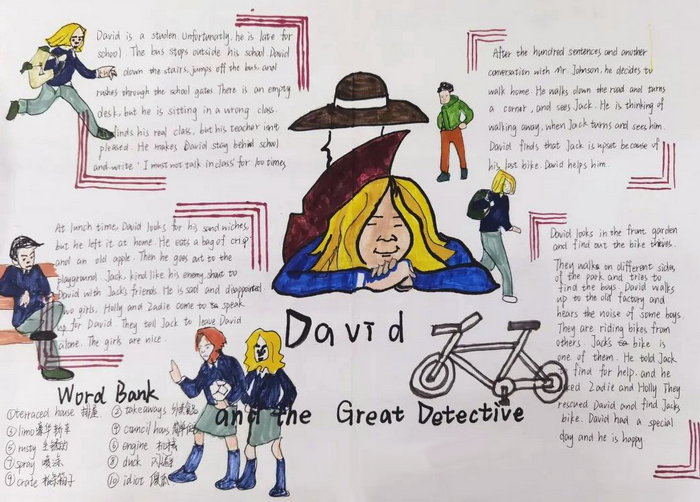 David is a studen. Unfortunately. he is late for
school. The bus stops outside his school. David
down the stairs. jumps off the bus. and
rushes through the school gates. There is an empty
desk, but he is sitting in a wrong class.
finds his real class, but his teacher isn't
pleased. He makes David stay behind school
and write 'I must not talk in class' for 100 times
After the hundred sentences and another
conversation with Mr Johnson, he decides to
walk home. He walks down the road and turns
a corner, and sees Jack. He is thinking of
walking away, when Jack turns and sees him.
David finds that Jack is upset because of
his lost bike. David helps him.
At lunch time, David looks for his sandwiches,
but he left it at home. He eats a bag of crisp
and an old apple. Then he goes out to the
playground. Jack, kind like his enemy, shout to
David with Jack's friends. He is sad and disappointed
Two girls. Holly and Zadie come to speak
up for David. They tell Jack to leave David
alone. The girls are nice.
David looks in the front garden
and find out the bike thieves.
They walk on different sides
of the park and tries to
find the boys. David walks
up to the old factory and
hears the noise of some boys.
They are riding bikes from
others. Jack's bike is
one of them. He told Jack
find for help. and he
Zadie and Holly They
rescued David and find Jack's
bike. David had a special
day and he is happy
David
and the Great Detective
Word Bank
①terraced house 排屋
②takeaways
③limo 豪华轿车
④council hous
⑤rusty 生锈的
⑥engine 机械
⑦spray 喷涂
⑧duck
⑨crate 板条箱子
⑩idiot 傻瓜